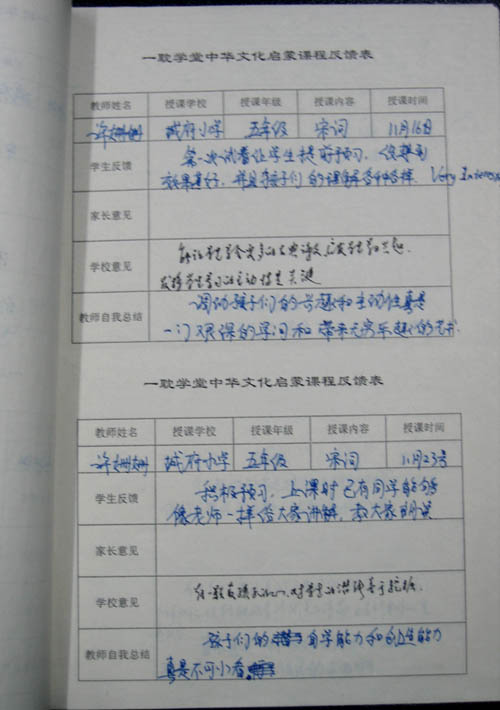 一耽学堂中华文化启蒙课程反馈表
教师姓名 授课学校 授课年级 授课内容 授课时间
许姗姗 城府小学 五年级 宋词 11月16日
学生反馈 第一次试着让学生提前预习,没想到
效果甚好,并且孩子们的讲解各种各样. Very Interes
家长意见
学校意见
教师自我总结 调动孩子们的兴趣和主动性真是
一门艰深的学问和带来无穷乐趣的艺术.
一耽学堂中华文化启蒙课程反馈表
教师姓名 授课学校 授课年级 授课内容 授课时间
许姗姗 城府小学 五年级 宋词 11月23号
学生反馈 积极预习,上课时已有同学能够
像老师一样给大家讲解,教大家朗读
家长意见
学校意见
教师自我总结 孩子们的自学能力和创造能力
真是不可小看